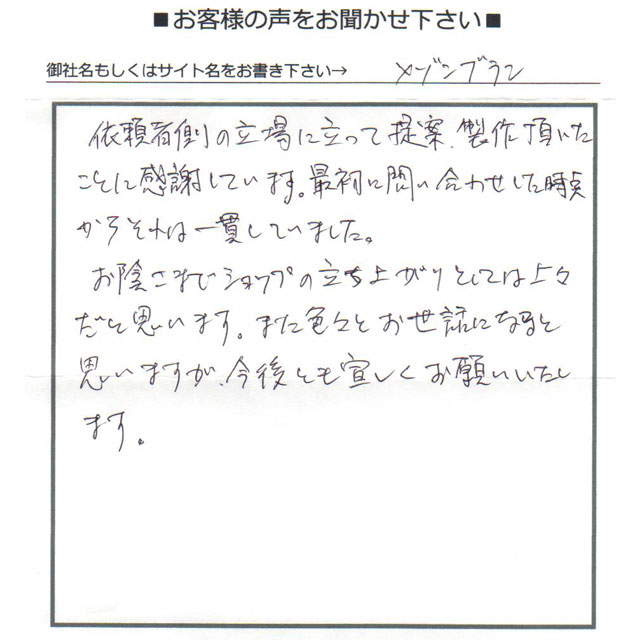 ■お客様の声をお聞かせ下さい■
御社名もしくはサイト名をお書き下さい→ メゾンブラン
依頼者側の立場に立って提案、製作頂いた
ことに感謝しています。最初に問い合わせした時点
からそれは一貫していました。
お陰さまでショップの立ち上がりとしては上々
だと思います。また色々とお世話になると
思いますが、今後とも宜しくお願いいたし
ます。